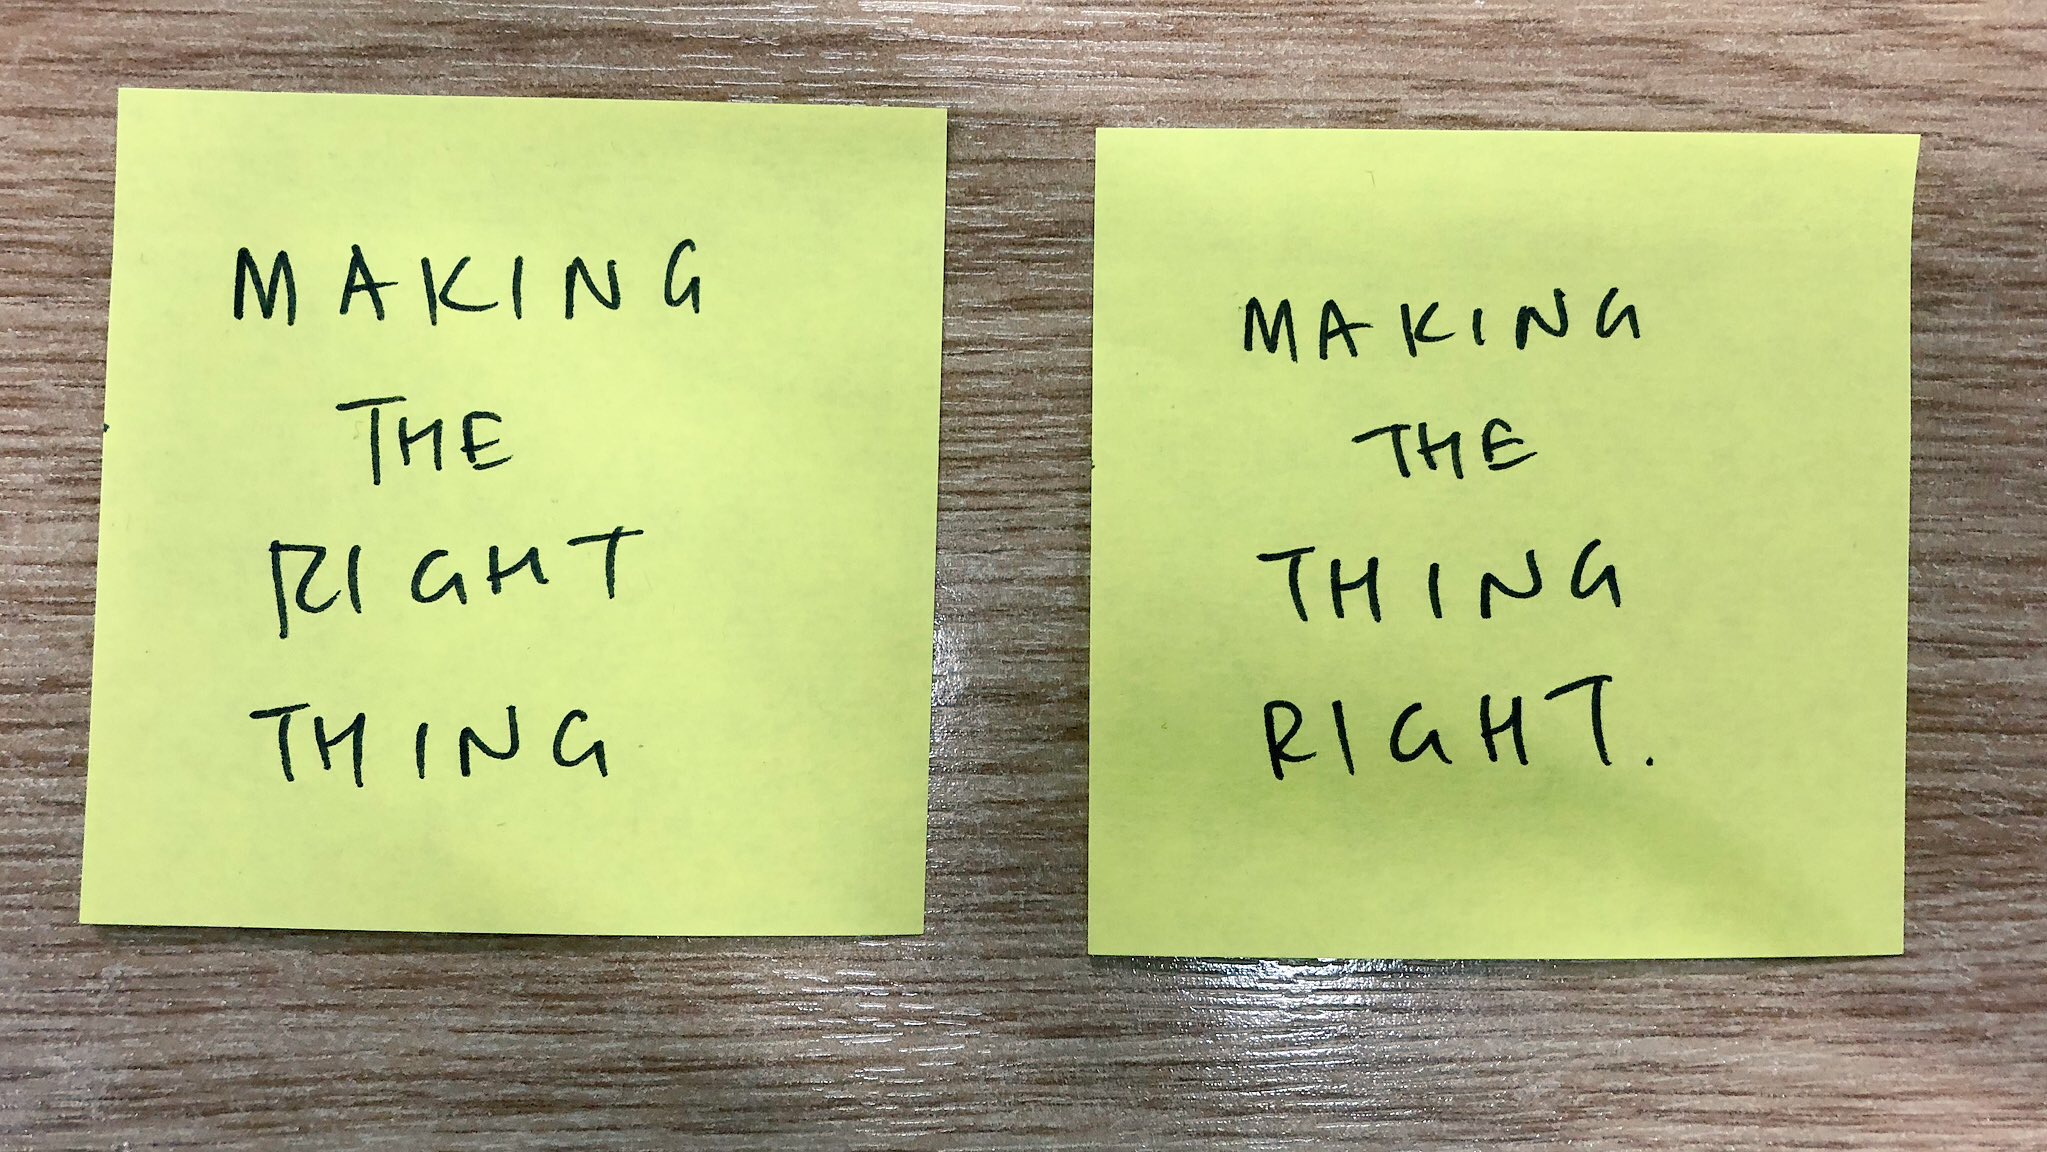 MAKING
THE
RIGHT
THING
MAKING
THE
THING
RIGHT.